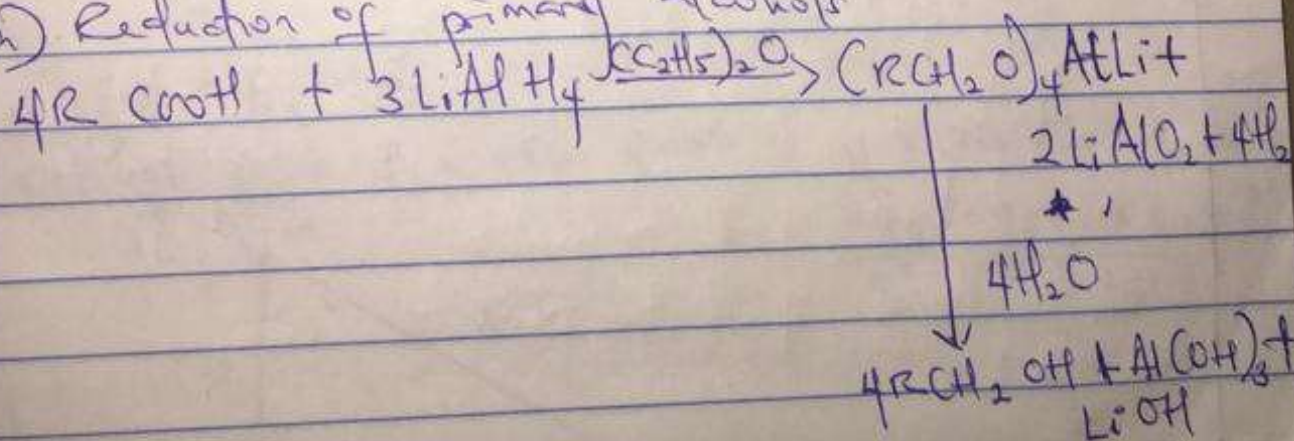 h) Reduction of primary alcohols
4R COOH + 3LiAlH₄ (C₂H₅)₂O> (RCH₂O)₄AlLi +
2LiAlO₂ + 4H₂
4H₂O
4RCH₂OH + Al(OH)₃ +
LiOH